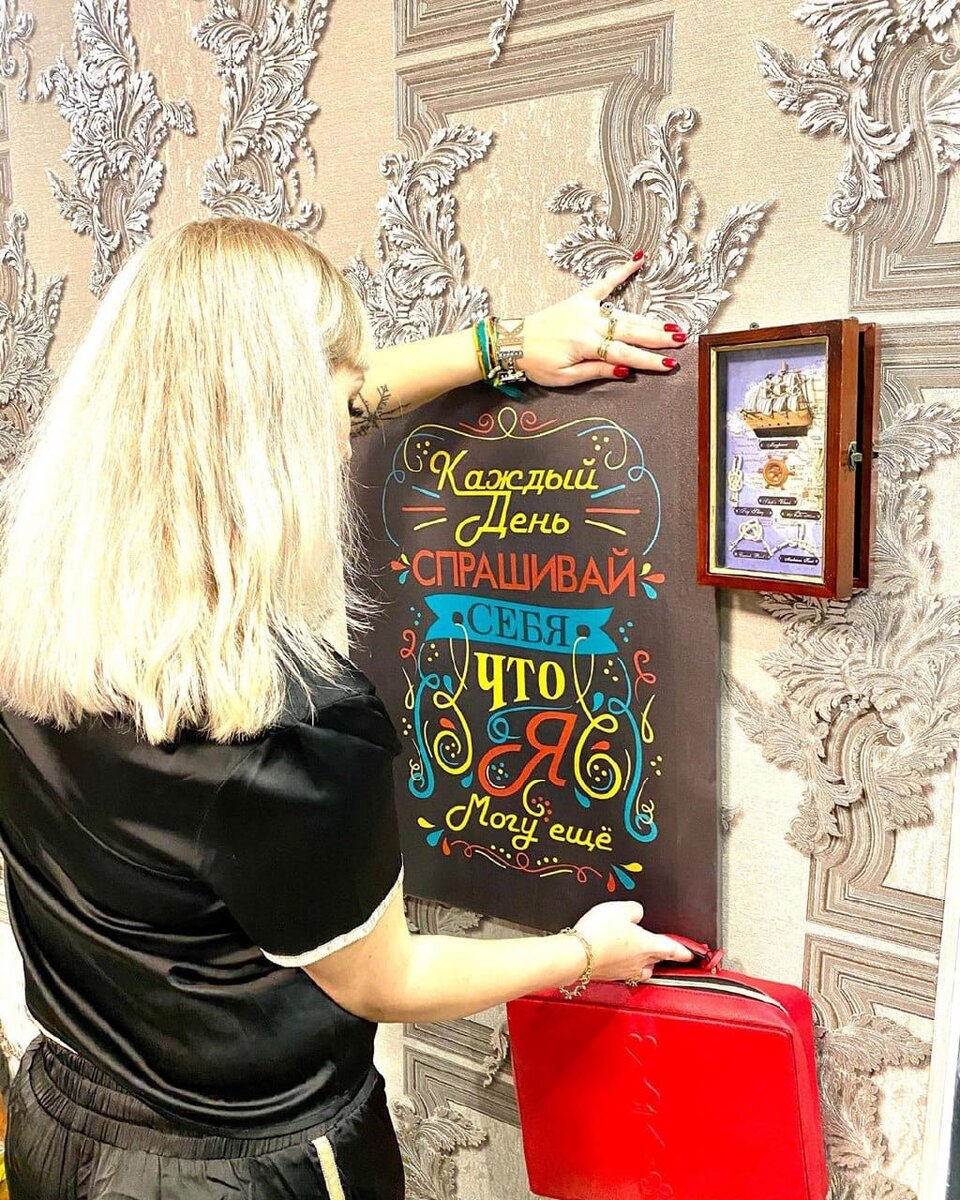 Каждый
День
СПРАШИВАЙ
СЕБЯ
ЧТО
Я
Могу ещё